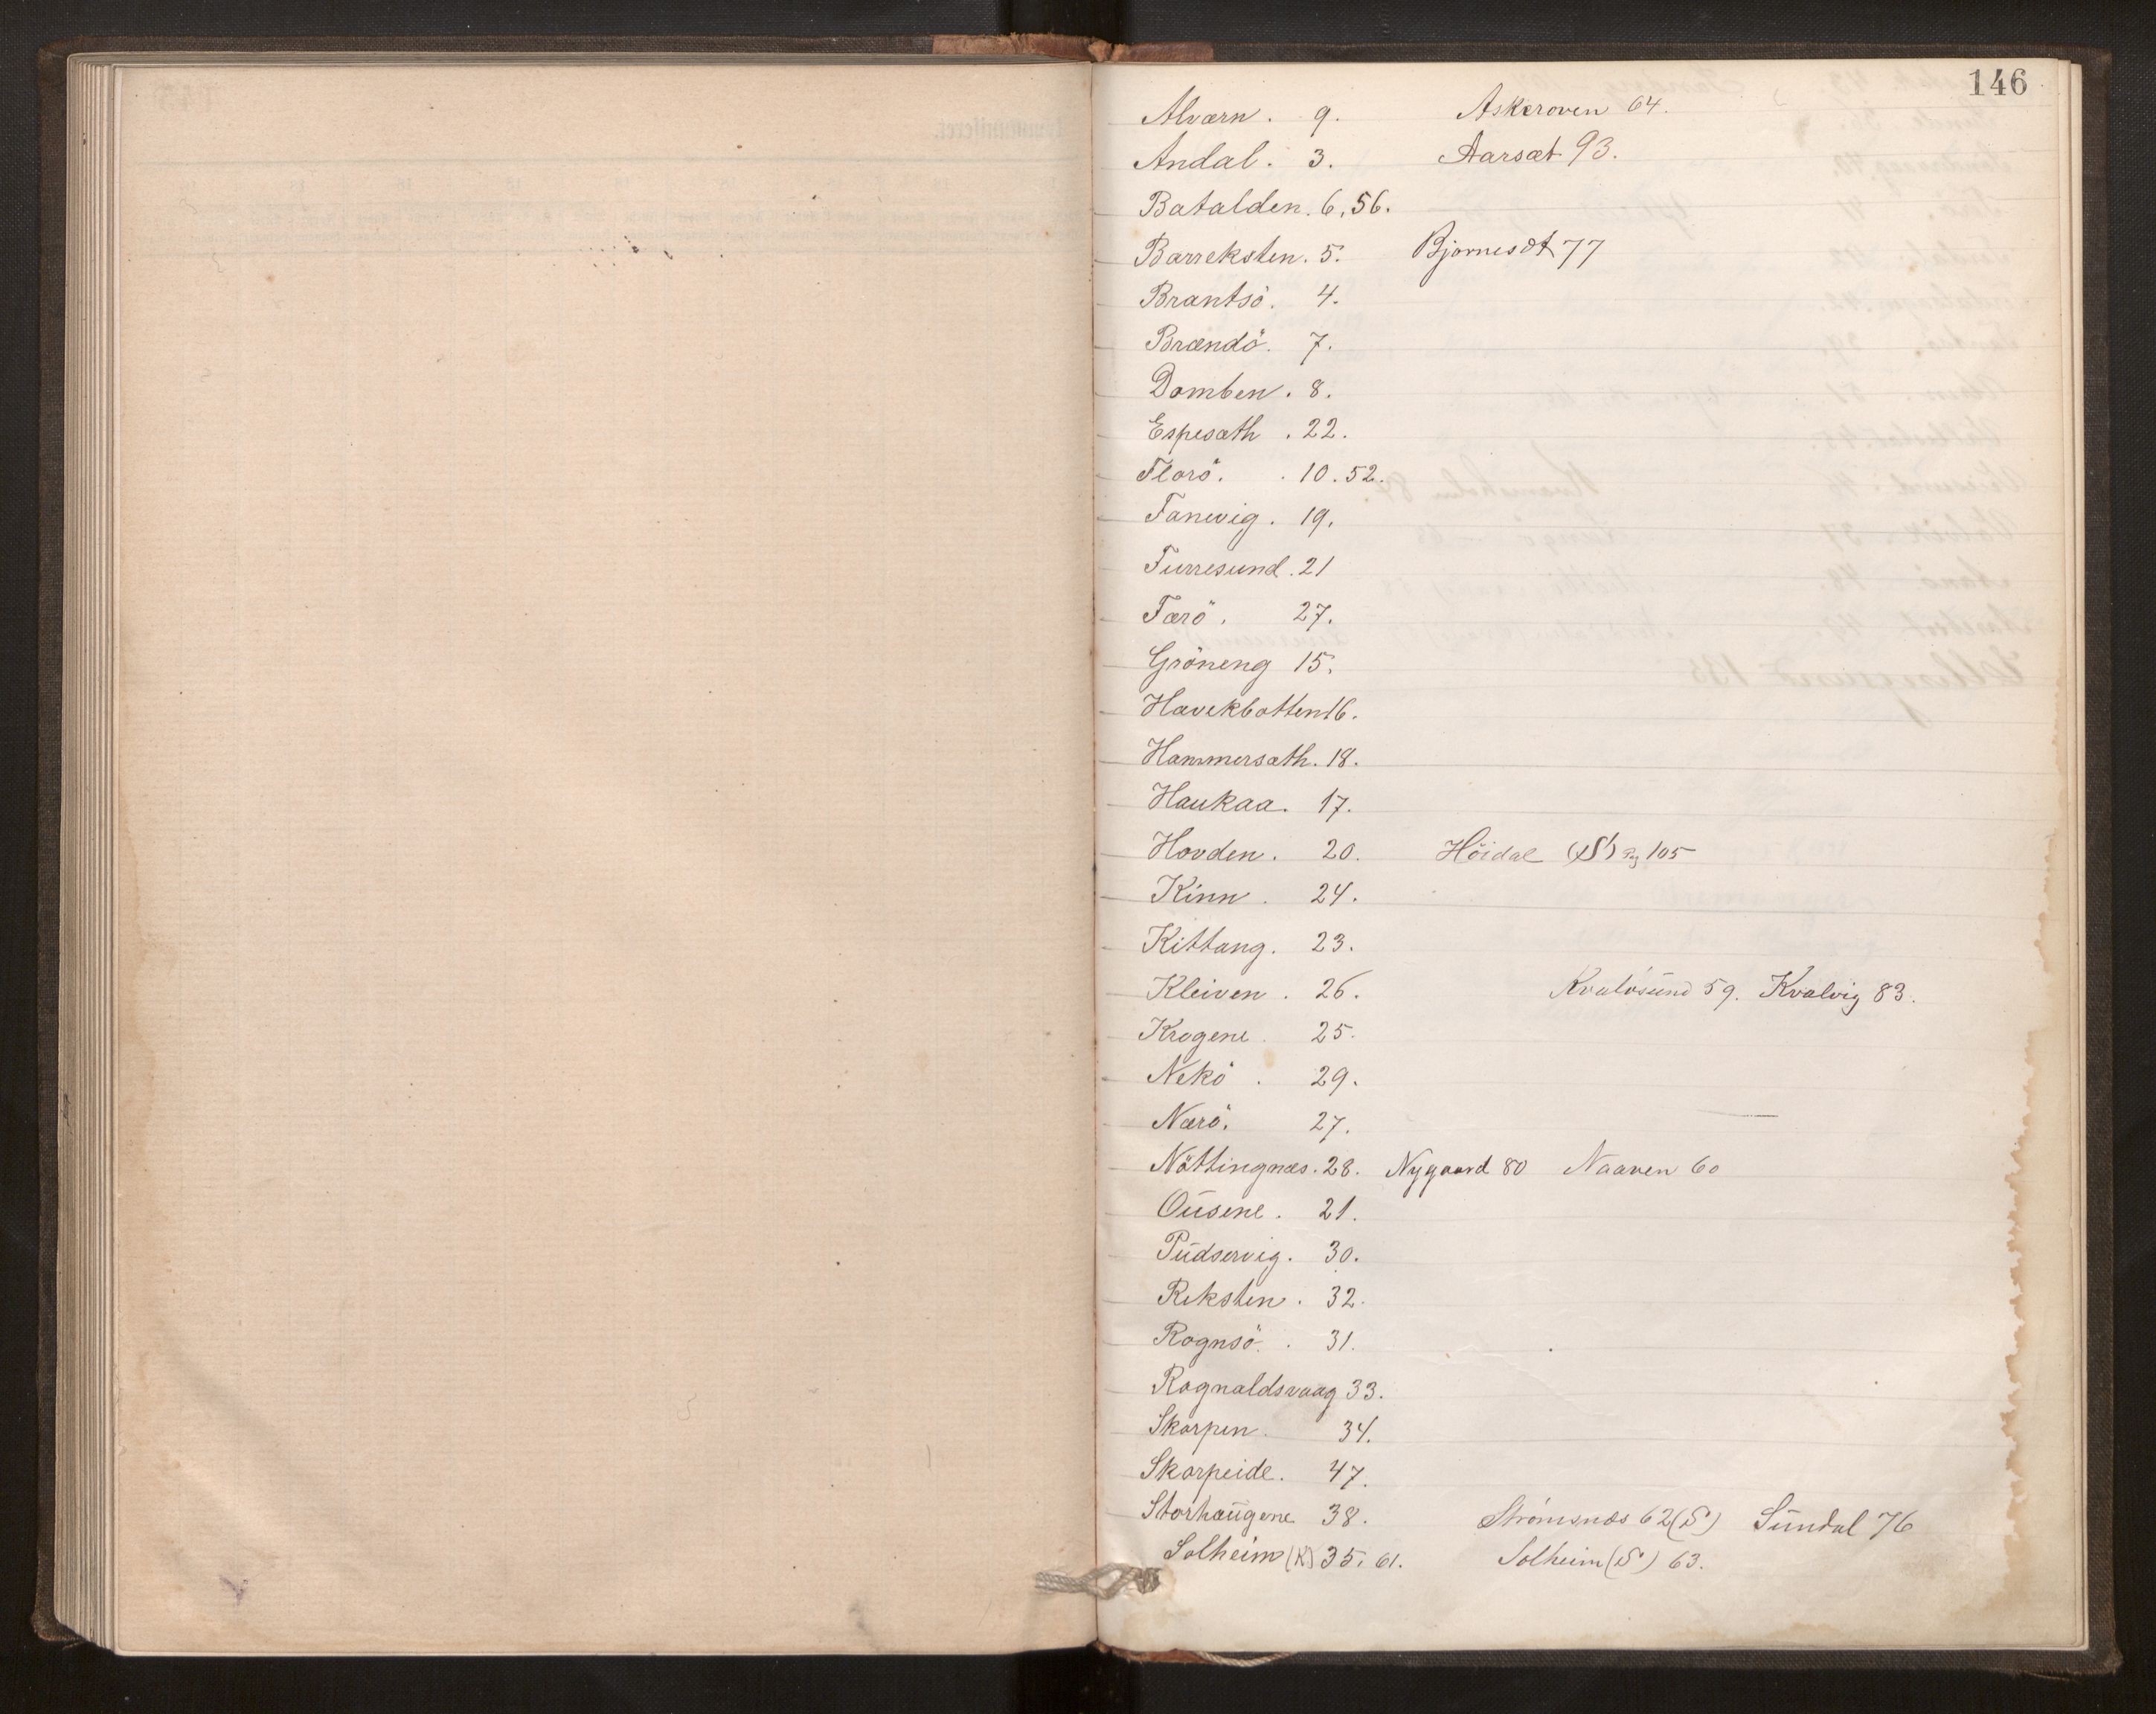 146
Alværn . 9. Askeroven 64.
Andal . 3. Aarsæt 93.
Batalden . 6, 56.
Barreksten . 5. Bjornesæt 77
Brantsö . 4.
Brændö . 7.
Domben . 8.
Espesæth . 22.
Florö . . 10 . 52.
Fanevig . 19.
Furresund . 21
Færö . 27.
Gröneng 15.
Havekbotten 16.
Hammersæth . 18.
Haukaa . 17.
Hovden . 20. Höidal (S) Pag 105
Kinn . 24.
Kittang . 23.
Kleiven . 26. Kvalösund 59. Kvalvig 83.
Krogene . 25.
Nekö . 29.
Nærö . 27.
Nöttingnæs . 28. Nygaard 80 Naaven 60
Oüsene . 21.
Püdservig . 30.
Reksten . 32.
Rognsö . . 31.
Rognaldsvaag 33.
Skorpen . 34.
Skorpeide . 47.
Storhaügene 38. Strömsnæs 62 (S) Sündal 76
Solheim (K) 35, 61. Solheim (S) 63.